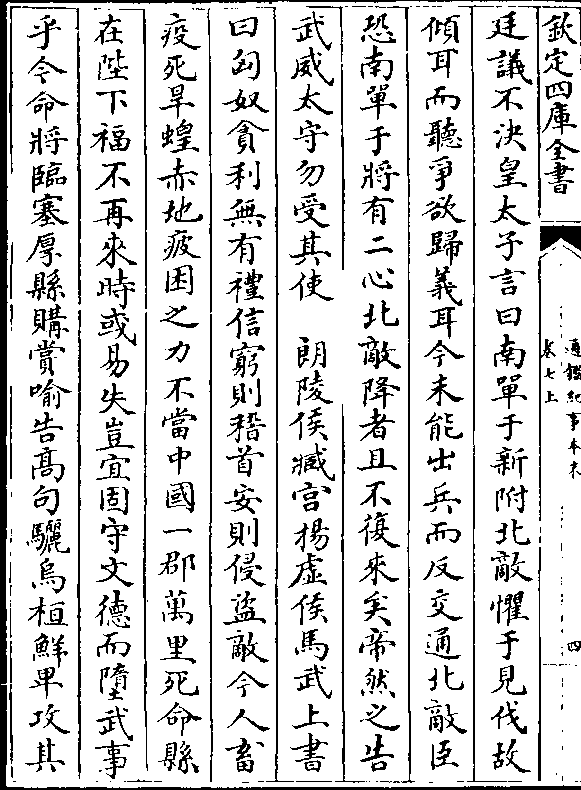 欽定四庫全書
通鑑紀事本末
卷七上
四
廷議不決皇太子言曰南單于新附北敵懼于見伐故
傾耳而聽爭欲歸義耳今未能出兵而反交通北敵臣
恐南單于將有二心北敵降者且不復來矣帝然之告
武威太守勿受其使　朗陵侯臧宮揚虛侯馬武上書
曰匈奴貪利無有禮信窮則稽首安則侵盜敵今人畜
疫死旱蝗赤地疲困之力不當中國一郡萬里死命縣
在陛下福不再來時或易失豈宜固守文德而墮武事
乎今命將臨塞厚縣購賞喻告高句驪烏桓鮮卑攻其